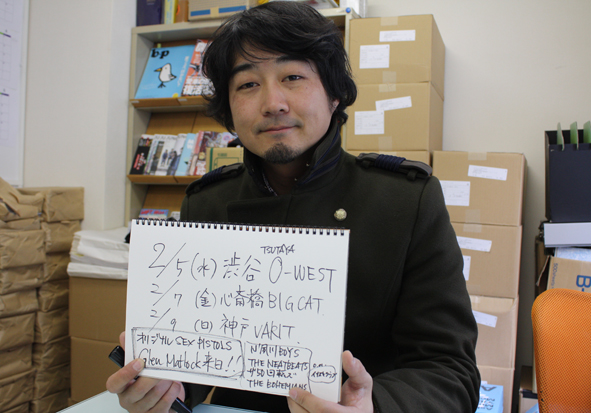 bp
TSUTAYA
2/5(水) 渋谷 O-WEST
2/7 (金) 心斎橋 BIGCAT.
2/9 (日) 神戸 VARIT.
オリジナル SEX PISTOLS
Glen Matlock 来日!!
N'夙川BOYS
THE NEATBEATS
THE BOHEMIANS